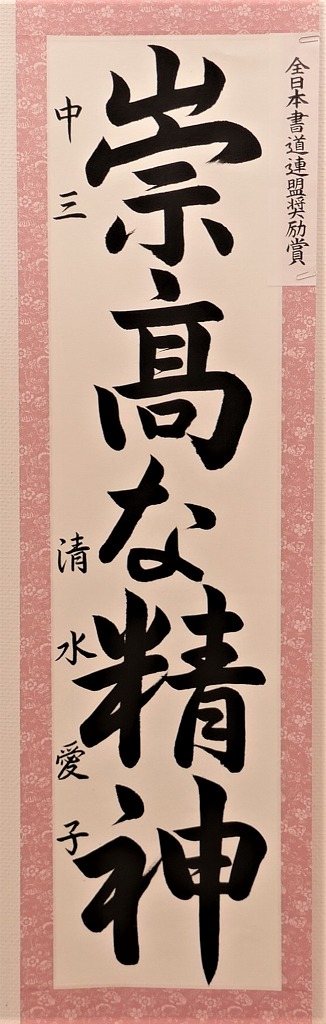 全日本書道連盟奨励賞
崇高な精神
中三 清水愛子